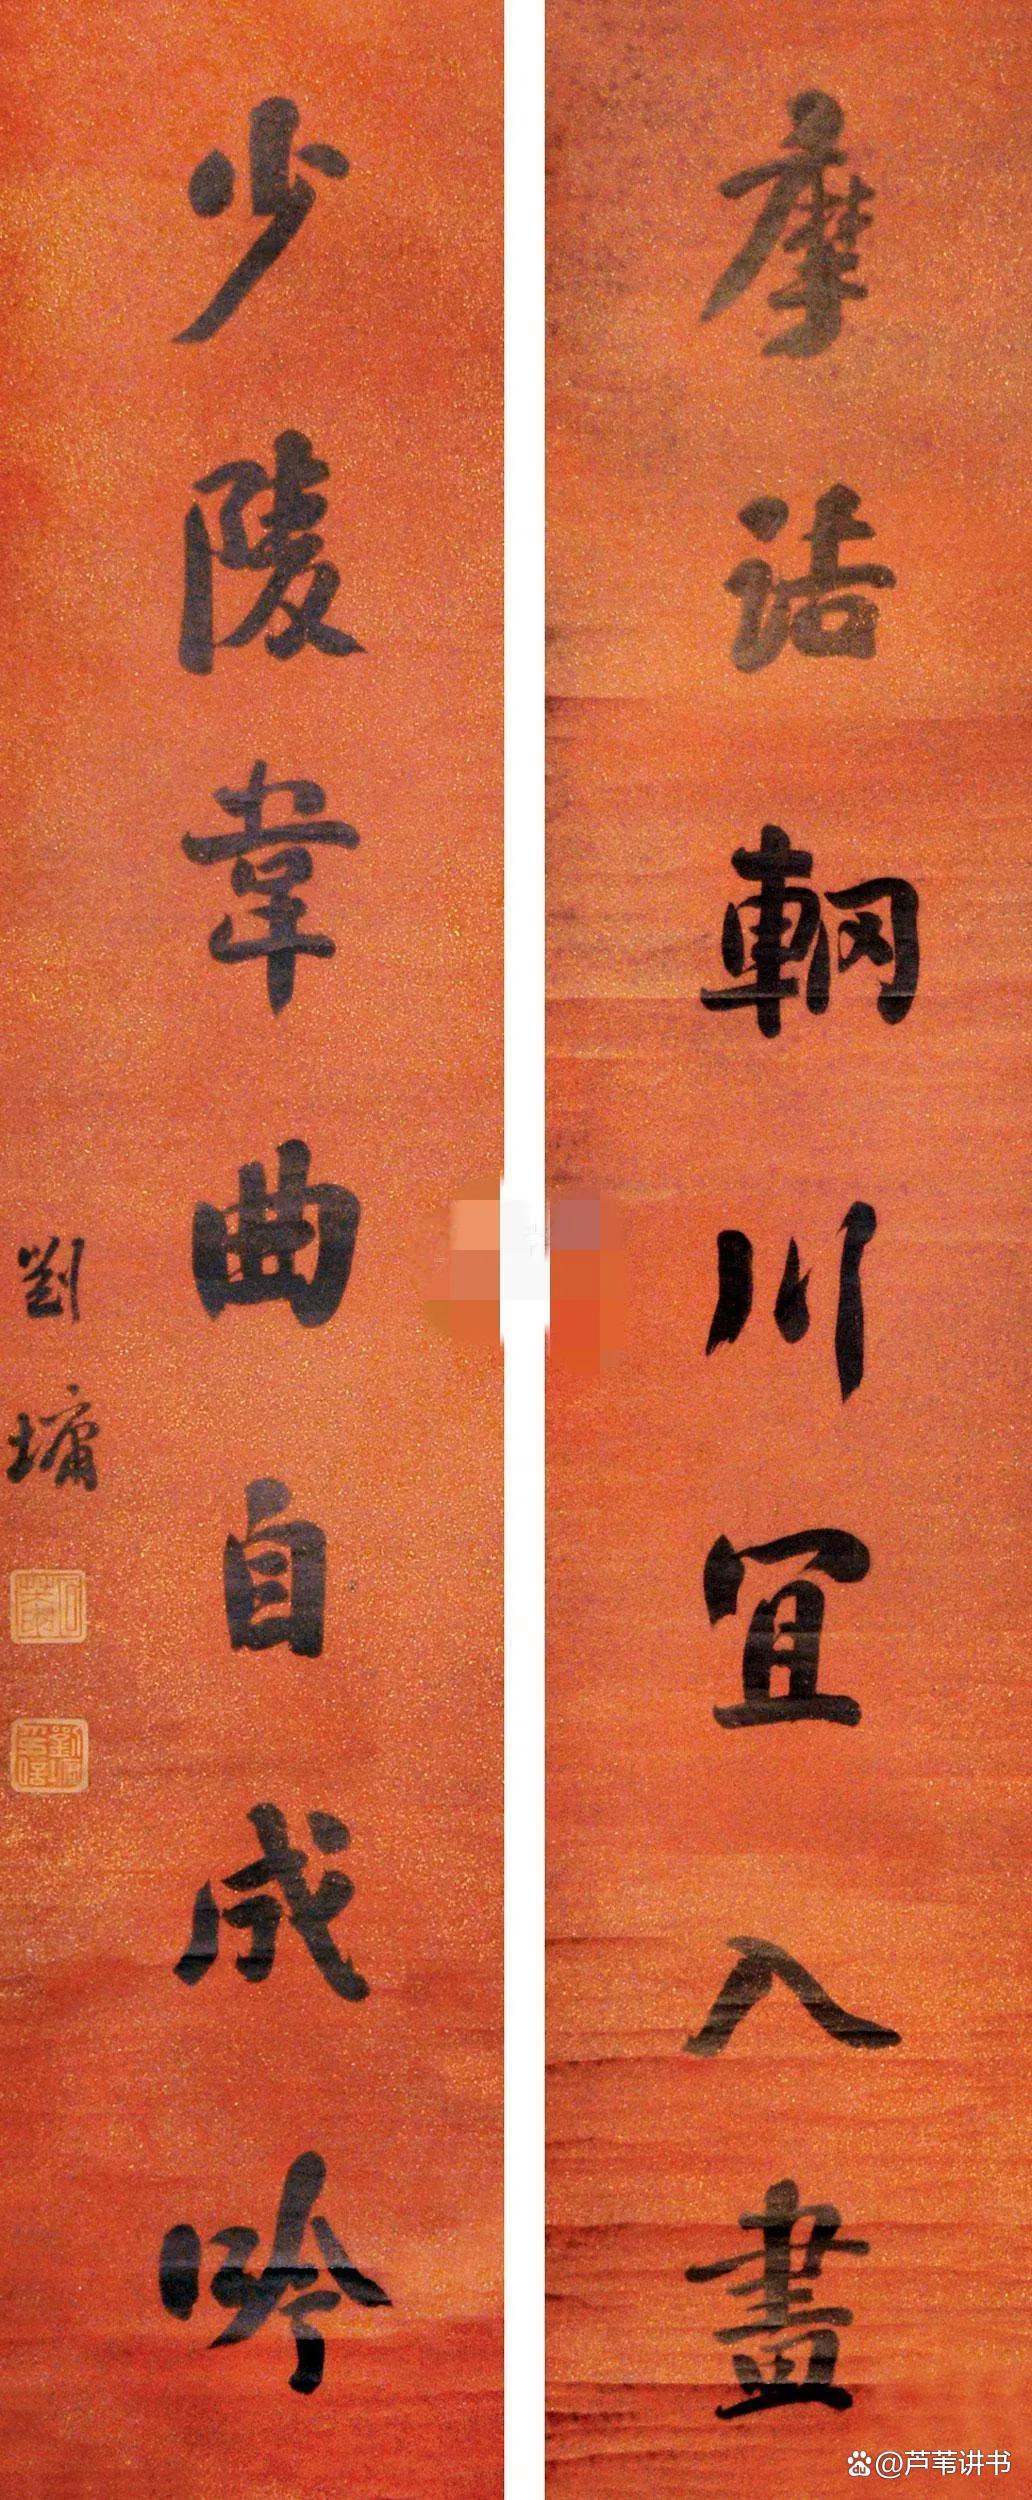 摩詰輞川宜入畫
少陵韋曲自成吟
劉墉
@芦苇讲书